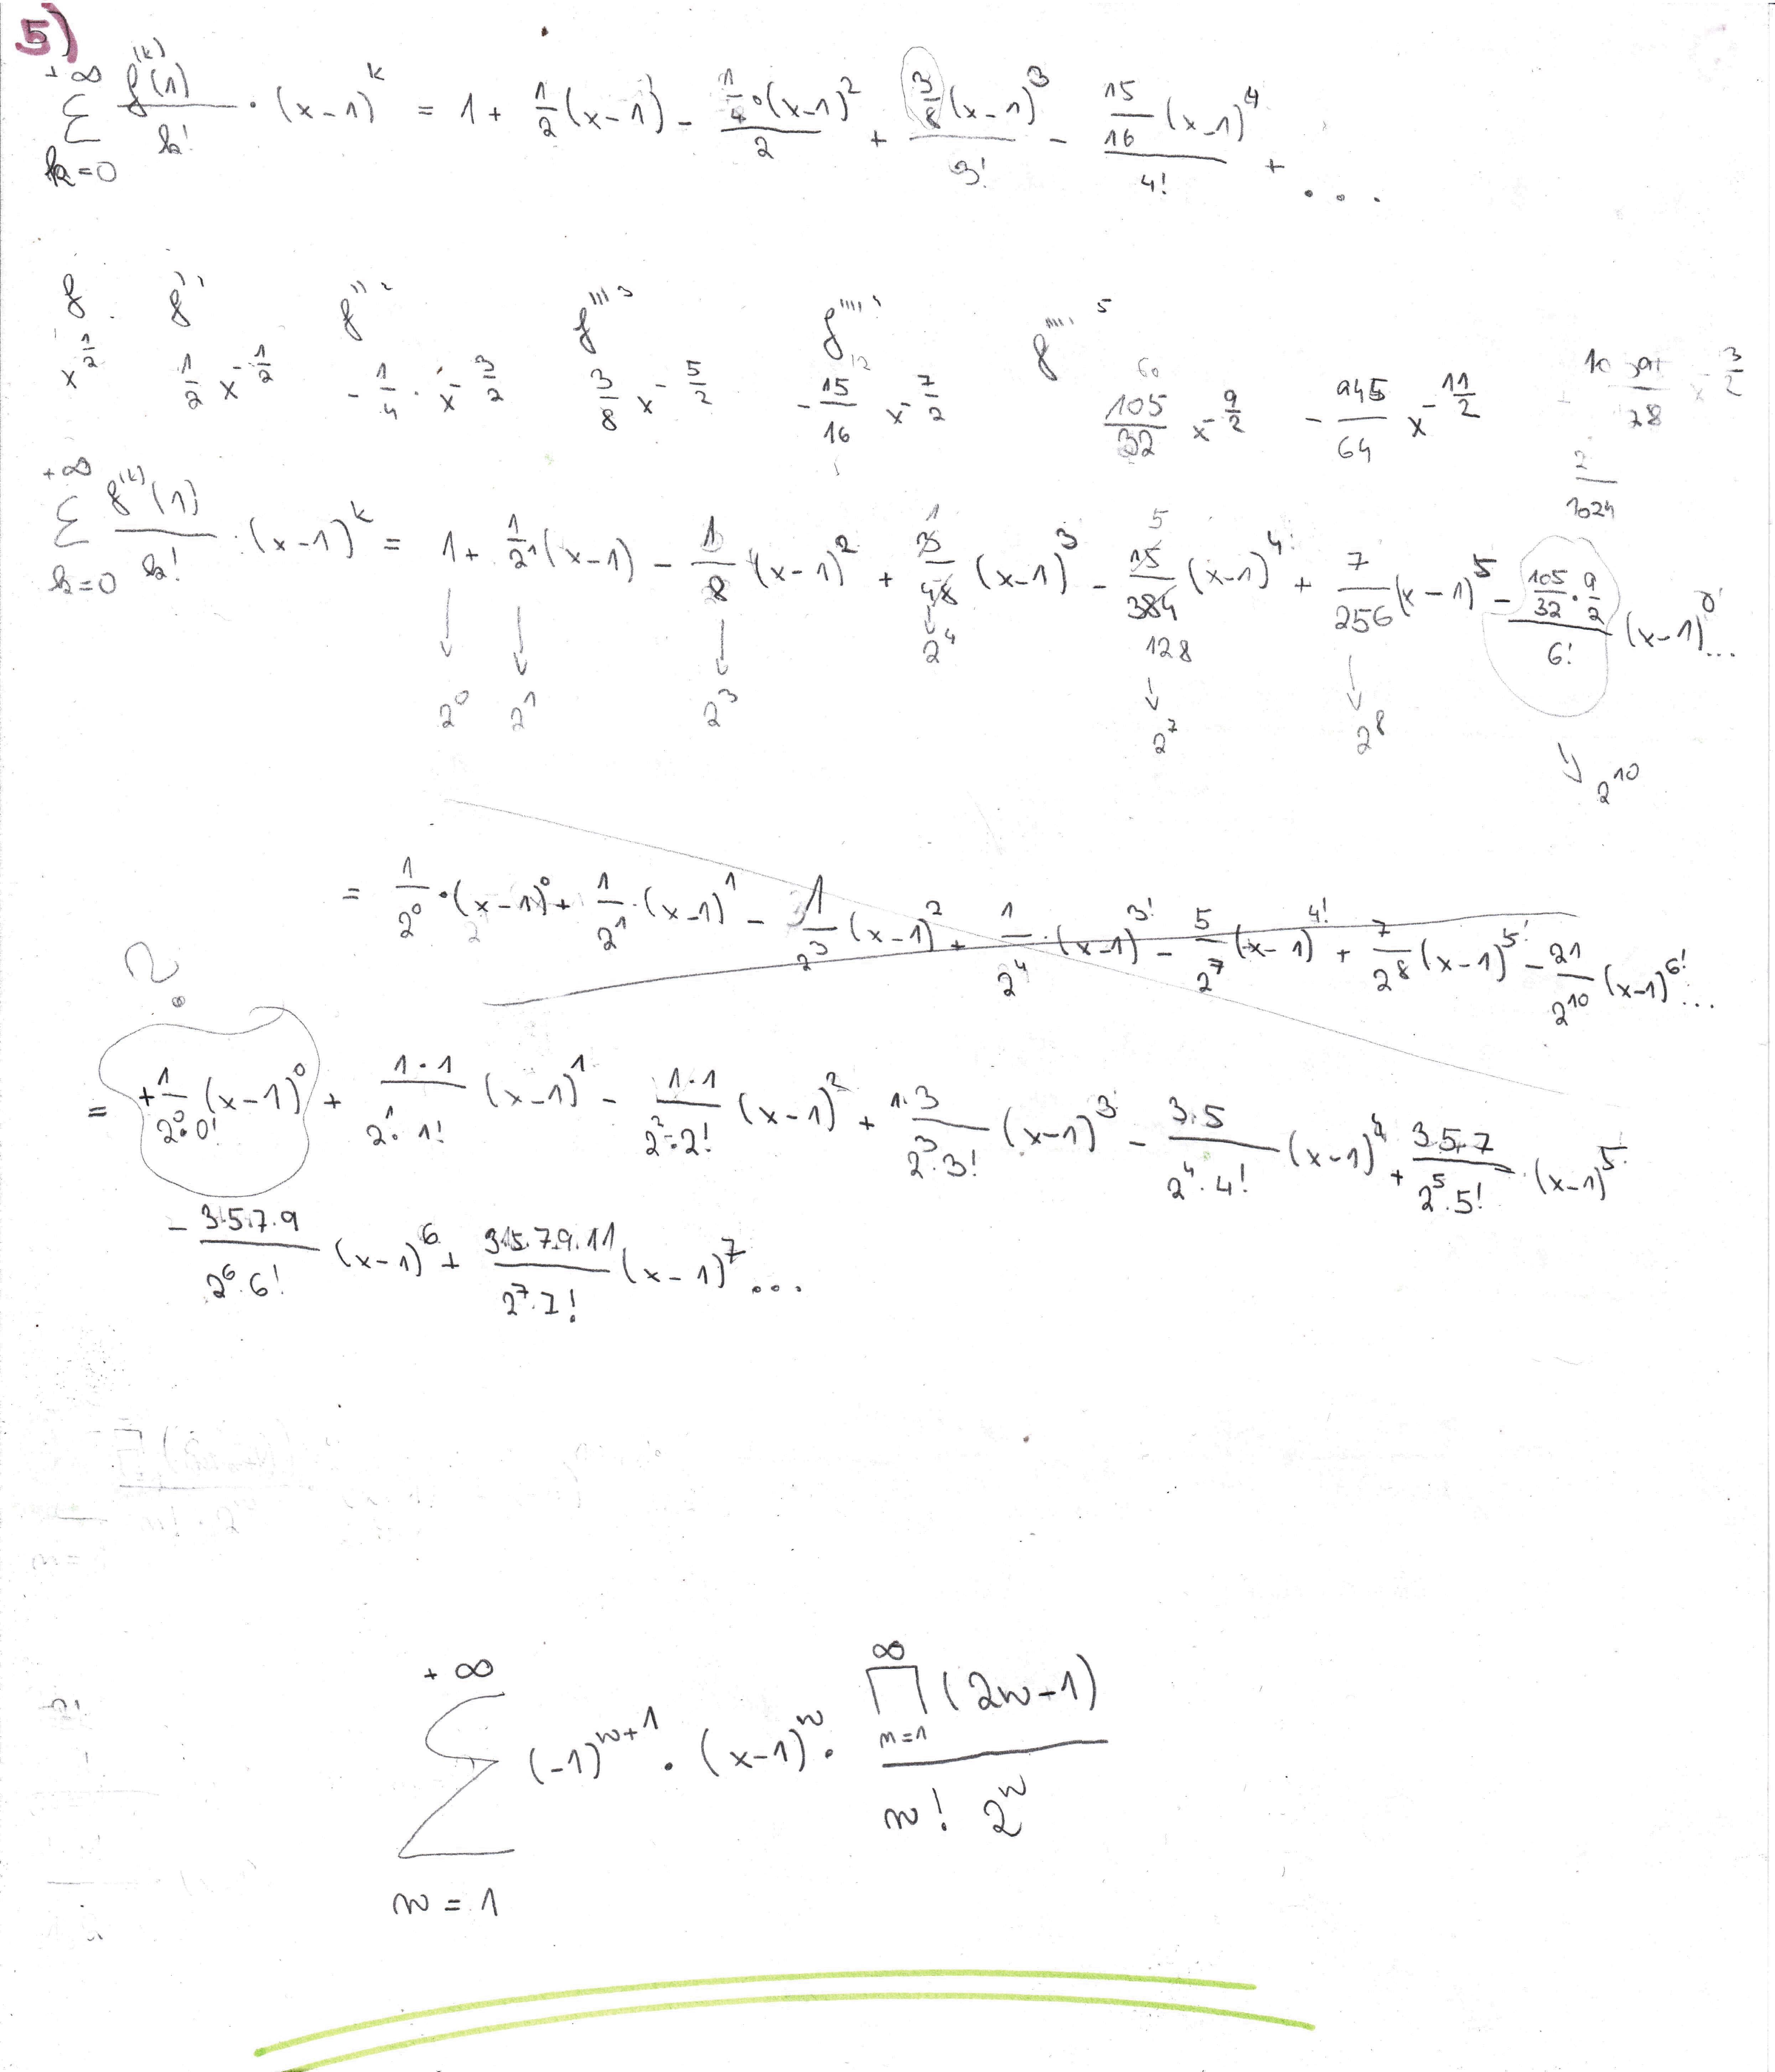 5)
+∞ Σ k=0 f^(k)(1)/k! · (x-1)^k = 1 + 1/2 (x-1) - (1/4 · (x-1)^2)/2 + (3/8 (x-1)^3)/3! - (15/16 (x-1)^4)/4! + ...
f f' f'' 2 f''' 3 f'''' f'''' 5
x^(1/2) 1/2 x^(-1/2) -1/4 · x^(-3/2) 3/8 x^(-5/2) -15/16 x^(-7/2) 105/32 x^(-9/2) -945/64 x^(-11/2)
+∞ Σ k=0 f^(k)(1)/k! · (x-1)^k = 1 + 1/2^1 (x-1) - 1/8 (x-1)^2 + 3/48 (x-1)^3 - 15/384 (x-1)^4 + 7/256 (x-1)^5 - (105/32 · 9/2)/6! (x-1) ...
1 5 128 1024
2^0 2^1 2^3 2^4 2^7 2^8 2^10
= 1/2^0 · (x-1)^0 + 1/2^1 · (x-1)^1 - 1/2^3 (x-1)^2 + 1/2^4 · (x-1)^3! - 5/2^7 (x-1)^4! + 7/2^8 (x-1)^5! - 21/2^10 (x-1)^6! ...
?
= +1/(2^0·0!) (x-1)^0 + 1·1/(2^1·1!) (x-1)^1 - 1·1/(2^2·2!) (x-1)^2 + 1·3/(2^3·3!) (x-1)^3 - 3·5/(2^4·4!) (x-1)^4 + 3·5·7/(2^5·5!) · (x-1)^5
- 3·5·7·9/(2^6·6!) (x-1)^6 + 3·5·7·9·11/(2^7·7!) (x-1)^7 ...
+∞ Σ n=1 (-1)^(n+1) · (x-1)^n · ∞ ∏ n=1 (2n-1) / n! 2^n